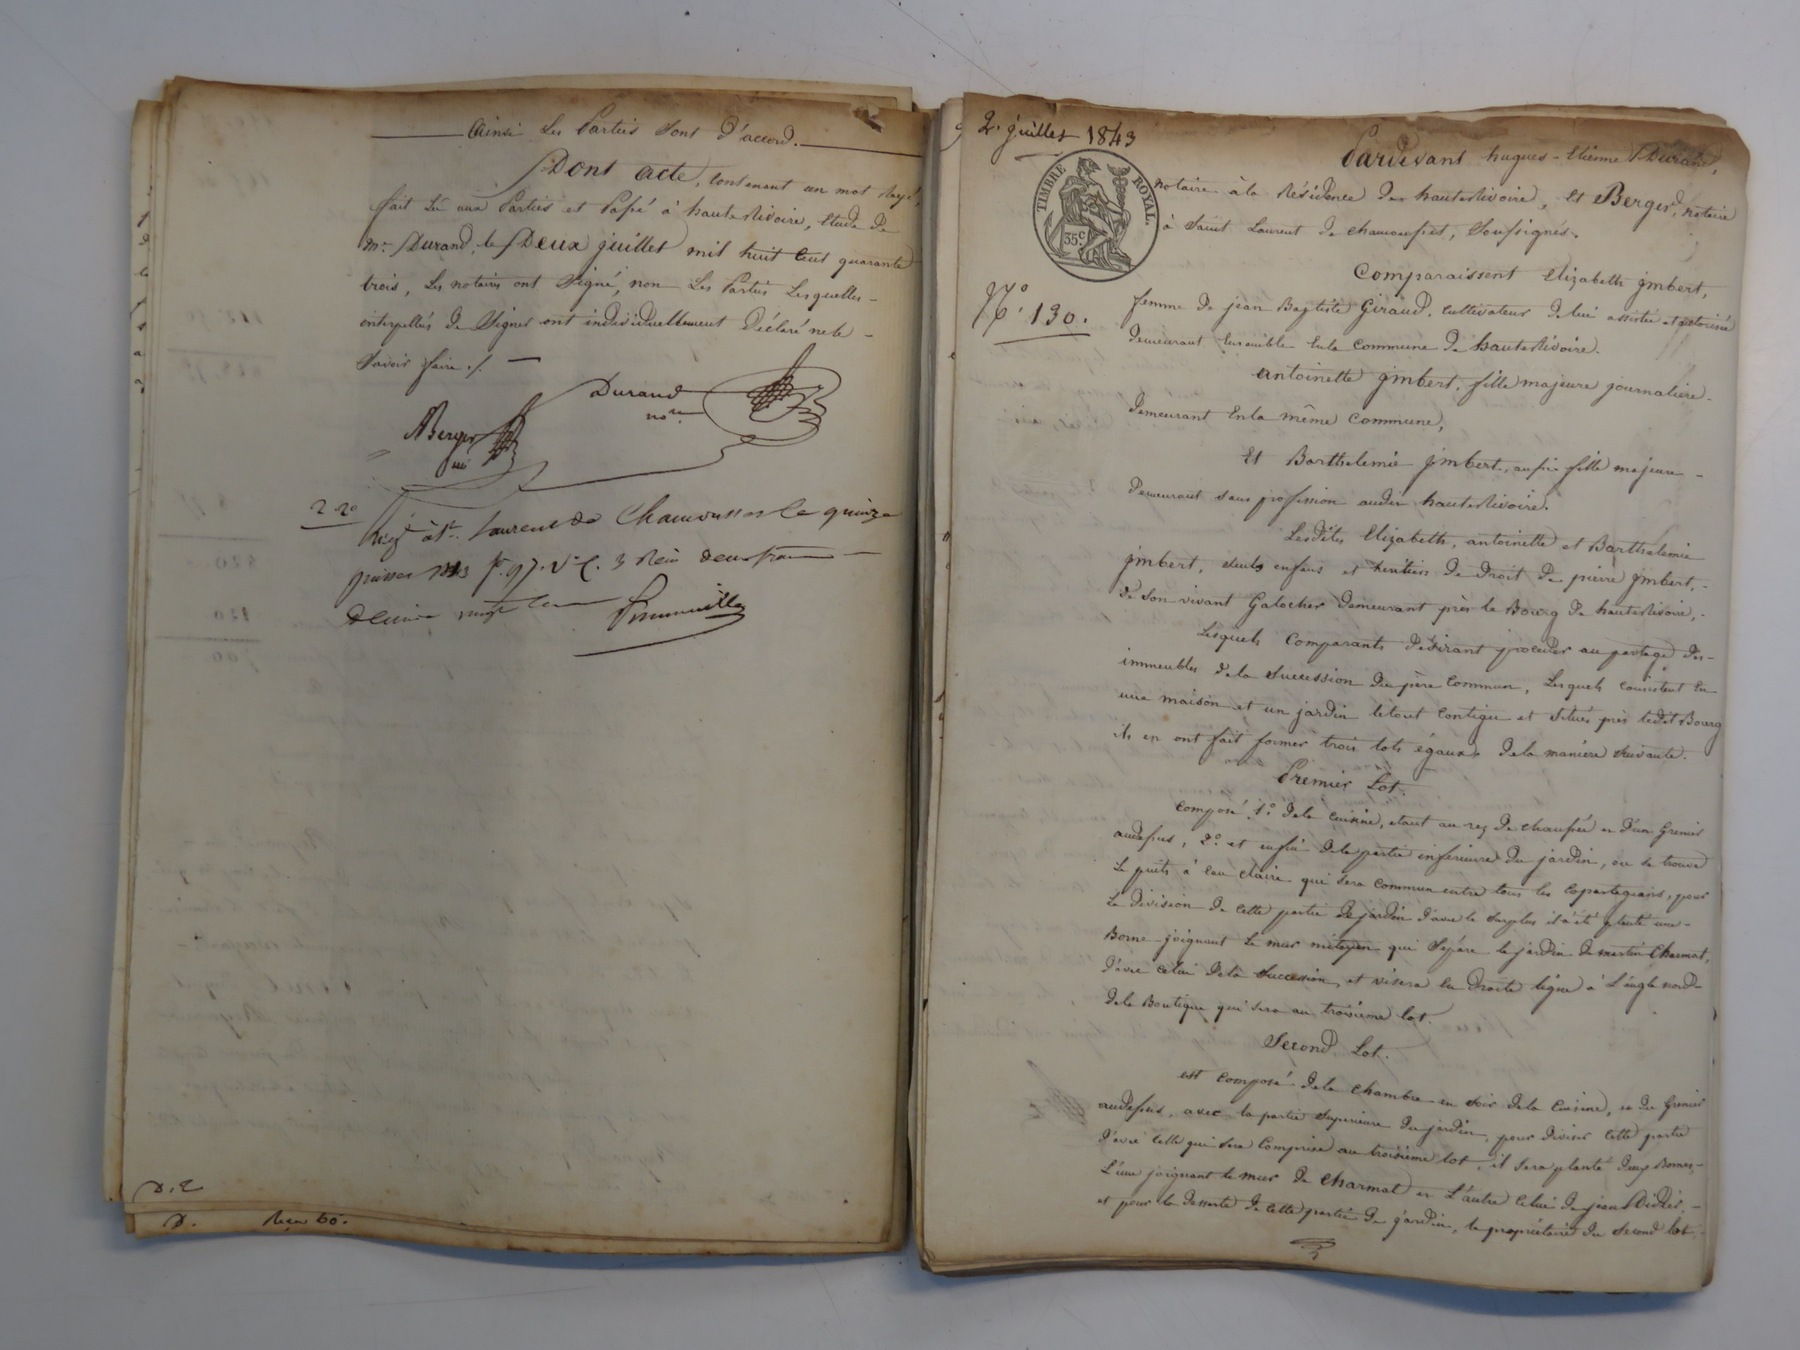 Ainsi les Parties sont d'accord.
Dont acte, contenant un mot rayé,
fait lu aux Parties et Passé à hauterivoire, Etude de
Mre Durand, le Deux juillet mil huit cent quarante
trois, Les notaires ont signé, non Les Parties Lesquelles
interpellés de signer ont individuellement Déclaré ne le
savoir faire ./.
Durand
nore
Berger
2 20
à St Laurent de Chamousset le quinze
1843 fo 97 Vo C. 3 Reçu deux francs
décime vingt
D. 2
D. Reçu 60.
2. juillet 1843
TIMBRE ROYAL.
35c
No 130.
Pardevant hugues-Etienne Durand,
notaire à la Résidence de hauterivoire, Et Berger, notaire
à Saint Laurent de chamousset, soussignés.
Comparaissent Elizabeth jmbert,
femme de jean Baptiste Giraud, cultivateur de lui assistée et autorisée
demeurant Ensemble En la Commune de hauterivoire.
antoinette jmbert, fille majeure journalière
demeurant En la même Commune,
Et Barthelemie jmbert, aussi fille majeure
demeurant sans profession audit hauterivoire.
Lesdites Elizabeth, antoinette et Barthelemie
jmbert, seuls enfans et heritiers de droit de pierre jmbert,
de son vivant Galocher demeurant près le Bourg de hauterivoire,
Lesquels Comparants désirant procéder au partage des
immeubles de la succession du père Commun, Lesquels consistent En
une maison et un jardin le tout contigu et situés près ledit Bourg
ils en ont fait former trois lots égaux de la manière suivante.
Premier Lot.
composé 1o de la cuisine, étant au rez de chaussée et d'un Grenier
audessus, 2o et enfin de la partie inferieure du jardin, ou se trouve
Le puits à eau claire qui sera commun entre tous les copartageans, pour
La division de cette partie de jardin d'avec le surplus il a été planté une
Borne joignant Le mur mitoyen qui sépare le jardin de martin Charmat,
d'avec celui de la succession, et visera En droite ligne à L'angle nord
de la Boutique qui sera au troisième lot.
Second Lot.
est composé de la chambre en soir de la Cuisine, et du Grenier
audessus, avec la partie superieure du jardin, pour diviser Cette partie
d'avec celle qui sera Comprise au troisième lot, il sera planté deux Bornes,
L'une joignant le mur de Charmat et L'autre Celui de jean Didier,
et pour la desserte de Cette partie de jardin, le propriétaire du second lot